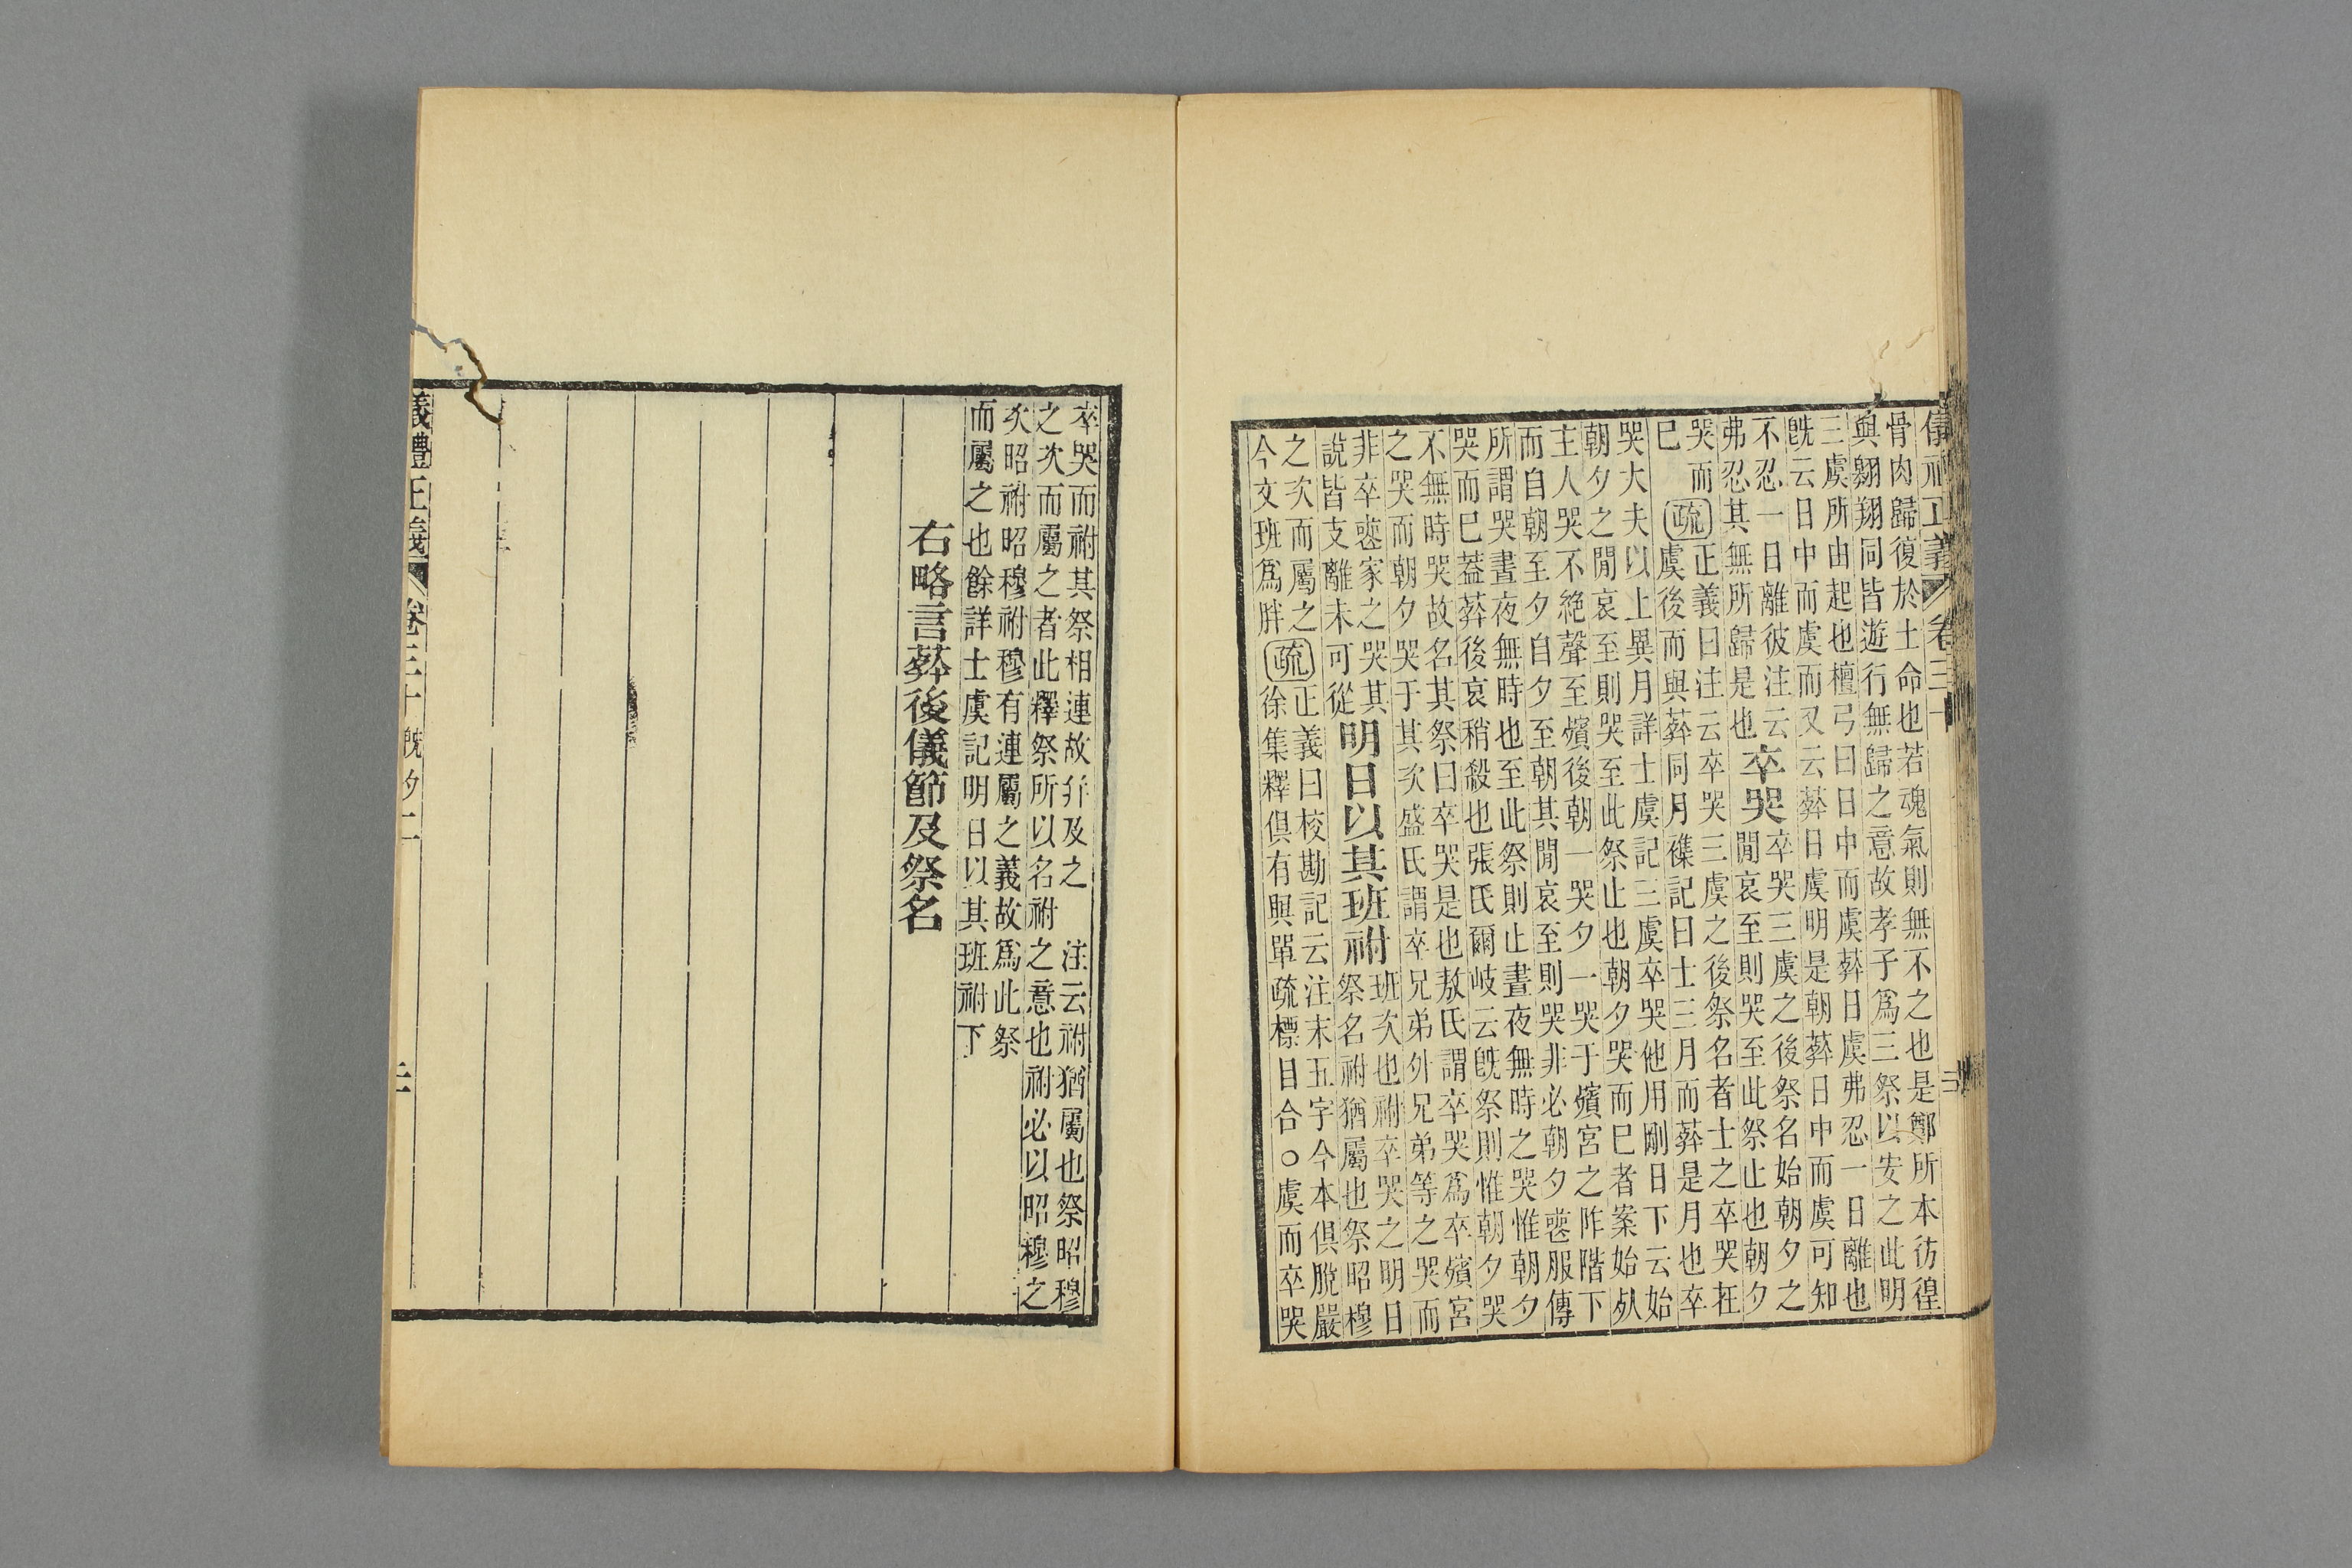 儀禮正義　卷三十　二
骨肉歸復於土命也若魂氣則無不之也是鄭所本彷徨
與翺翔同皆遊行無歸之意故孝子爲三祭以安之此明
三虞所由起也檀弓曰日中而虞葬日虞弗忍一日離也
旣云日中而虞而又云葬日虞明是朝葬日中而虞可知
不忍一日離彼注云
弗忍其無所歸是也
卒哭
卒哭三虞之後祭名始朝夕之
閒哀至則哭至此祭止也朝夕
哭而
已
疏
正義曰注云卒哭三虞之後祭名者士之卒哭在
虞後而與葬同月襍記曰士三月而葬是月也卒
哭大夫以上異月詳士虞記三虞卒哭他用剛日下云始
朝夕之閒哀至則哭至此祭止也朝夕哭而已者案始死
主人哭不絶聲至殯後朝一哭夕一哭于殯宮之阼階下
而自朝至夕自夕至朝其閒哀至則哭非必朝夕喪服傳
所謂哭晝夜無時也至此祭則止晝夜無時之哭惟朝夕
哭而已蓋葬後哀稍殺也張氏爾岐云旣祭則惟朝夕哭
不無時哭故名其祭曰卒哭是也敖氏謂卒哭爲卒殯宮
之哭而朝夕哭于其次盛氏謂卒兄弟外兄弟等之哭而
非卒喪家之哭其
說皆支離未可從
明日以其班祔
班次也祔卒哭之明日
祭名祔猶屬也祭昭穆
之次而屬之
今文班爲胖
疏
正義曰校勘記云注末五字今本俱脫嚴
徐集釋俱有與單疏標目合○虞而卒哭
卒哭而祔其祭相連故幷及之　注云祔猶屬也祭昭穆
之次而屬之者此釋祭所以名祔之意也祔必以昭穆之
次昭祔昭穆祔穆有連屬之義故爲此祭
而屬之也餘詳士虞記明日以其班祔下
右略言葬後儀節及祭名
儀禮正義　卷三十　旣夕二　三